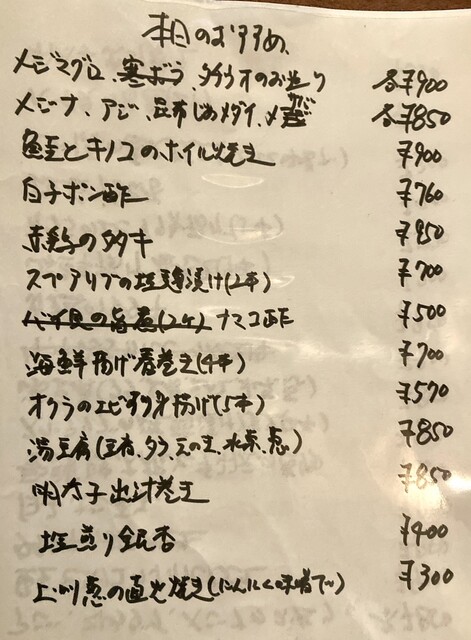 本日のおすすめ
メジマグロ、寒ぶり、タチウオのお造り 各¥900
メジナ、アジ、昆布じめメダイ、〆 各¥850
鮭とキノコのホイル焼き ¥900
白子ポン酢 ¥760
赤鶏のタタキ ¥950
スペアリブの塩麹漬け(2本) ¥700
バイ貝の旨煮(2ケ) ナマコ酢 ¥500
海鮮揚げ春巻き(4本) ¥700
オクラのエビすり身揚げ(5本) ¥570
湯豆腐(豆腐、タラ、えのき、水菜、葱) ¥850
明太子出汁巻き ¥850
塩煎り銀杏 ¥400
上州葱の直火焼き(にんにく味噌で) ¥300